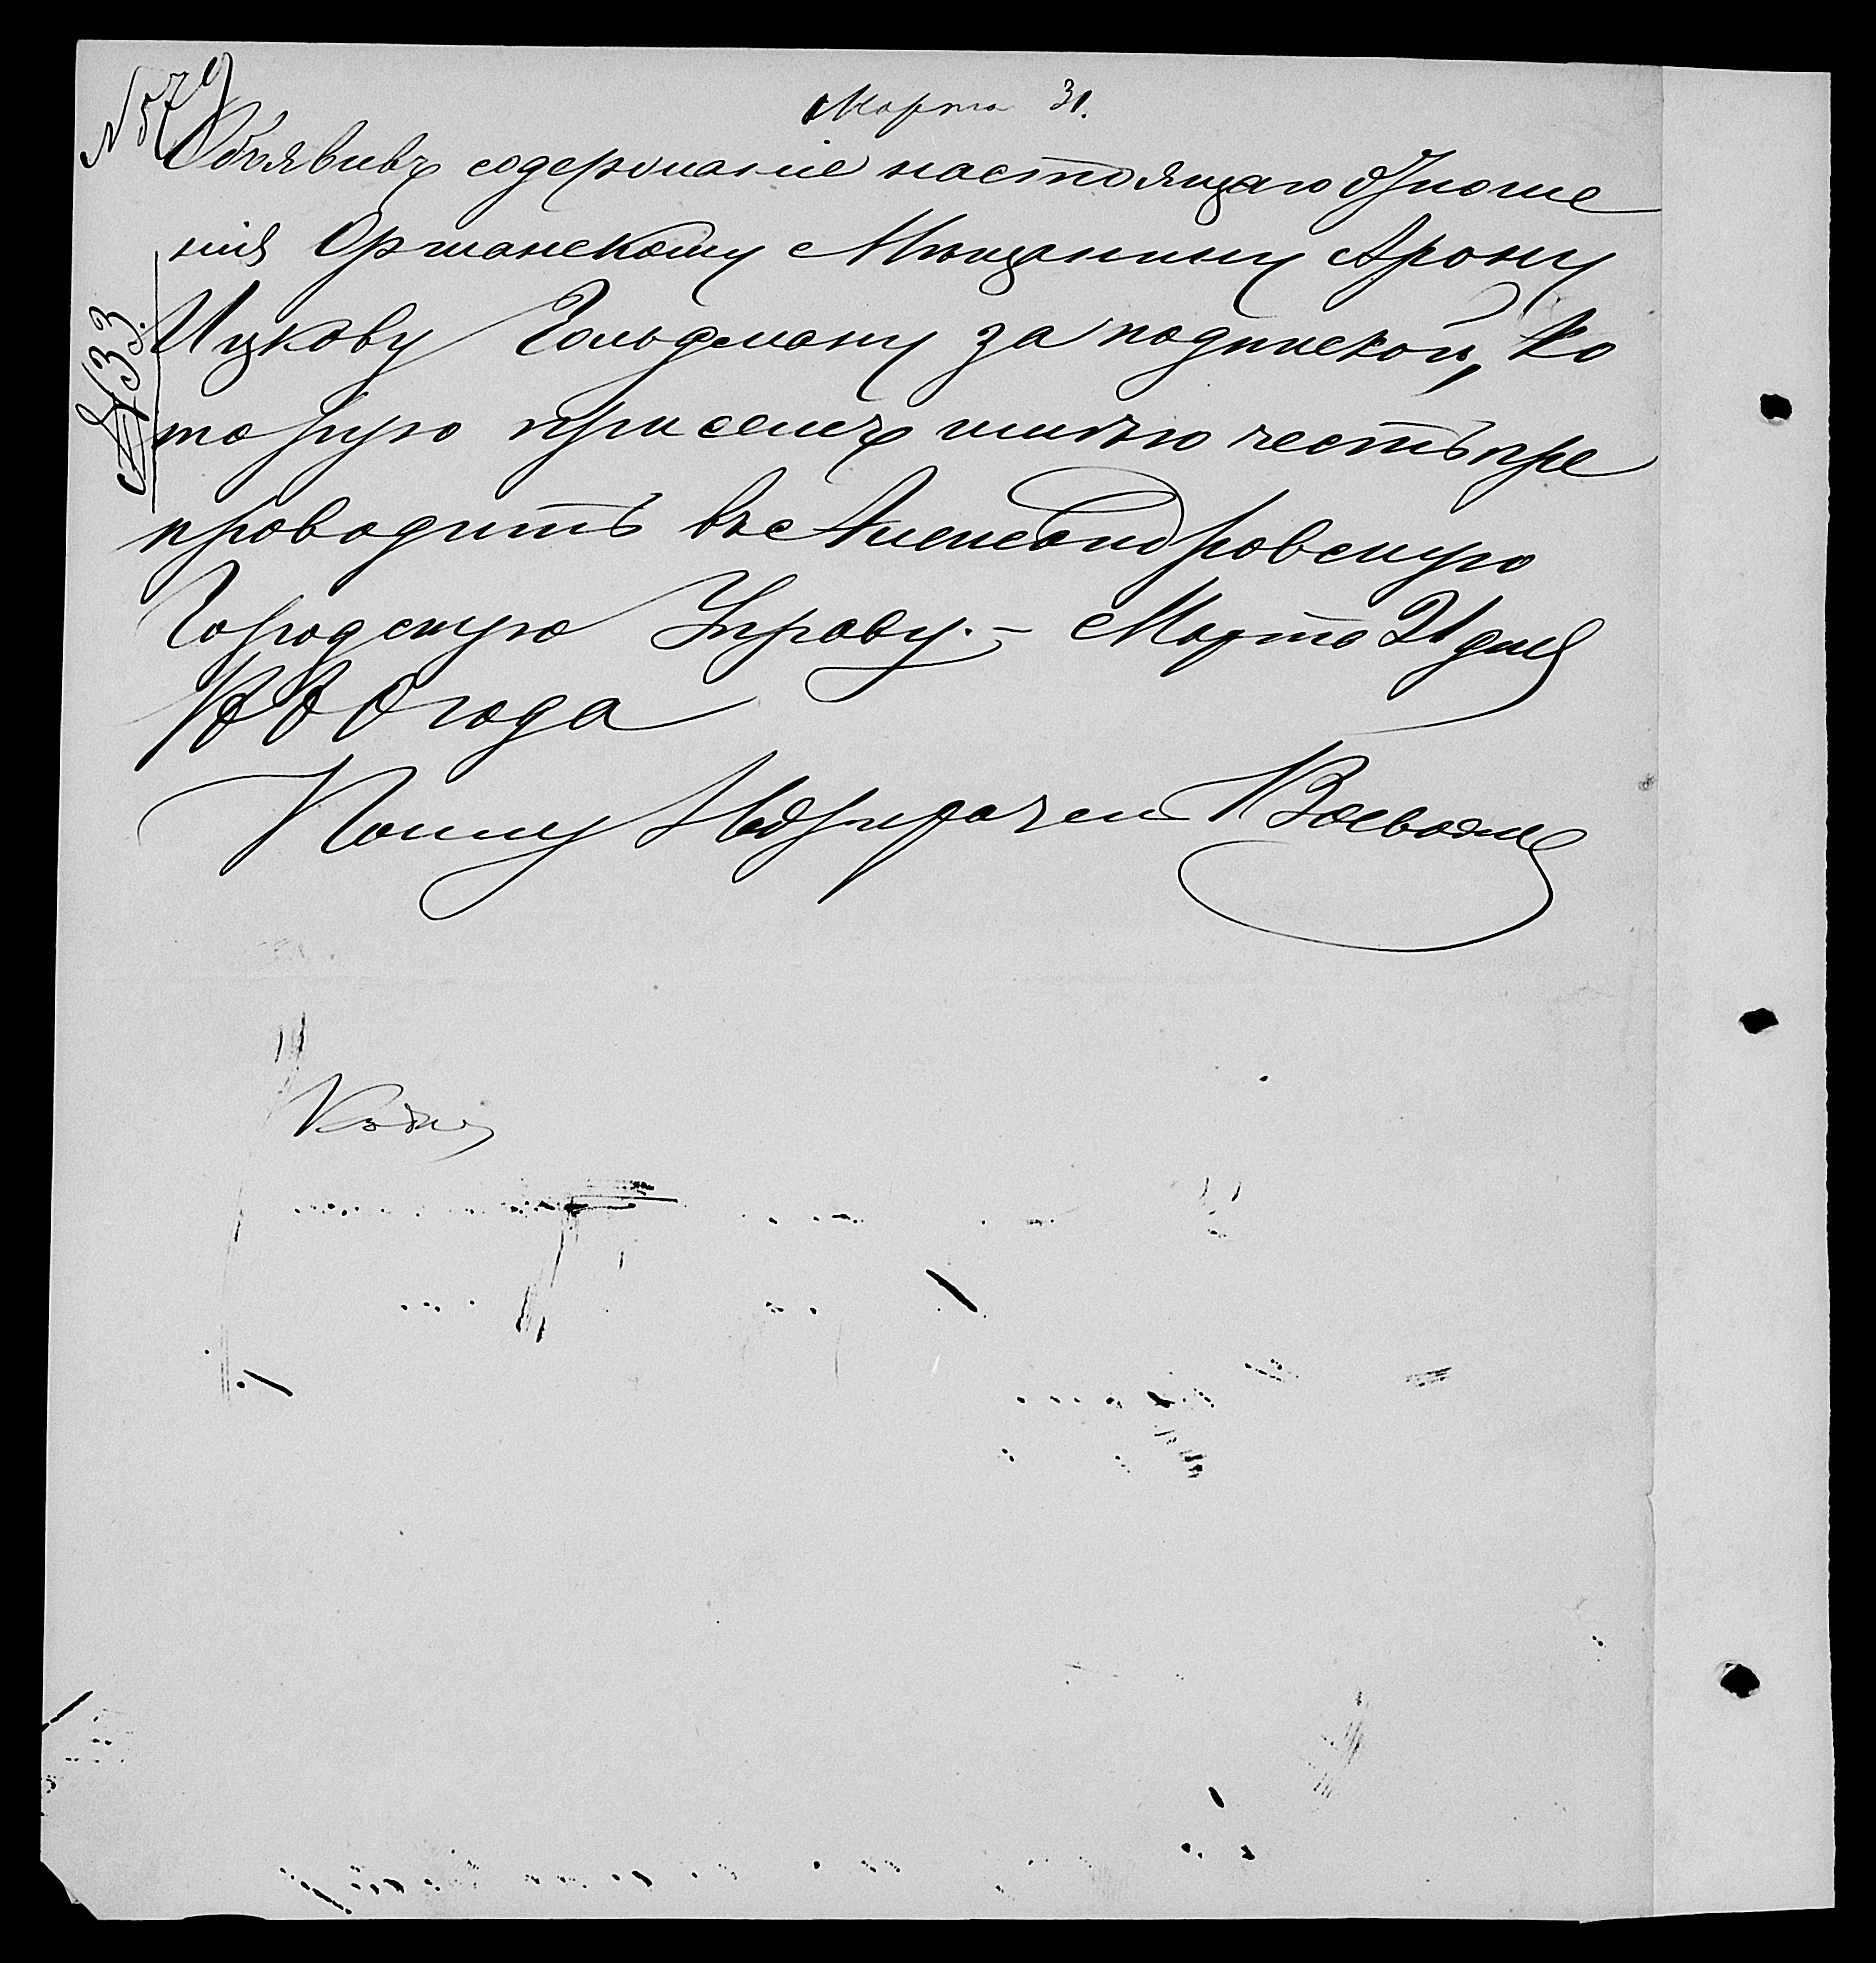 № 579
Марта 31.
Объявивъ содержаніе настоящаго отноше
нія Оршанскому Мѣщанину Арону
Ицкову Гольдману за подпиской, ко
№ 433.
торую при семъ имѣю честь пре
проводить въ Александровскую
Городскую Управу. – Марта 31 дня
1880 года